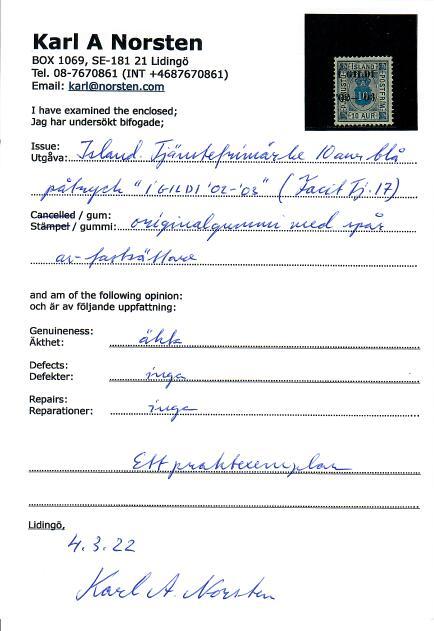 Karl A Norsten
BOX 1069, SE-181 21 Lidingö
Tel. 08-7670861 (INT +4687670861)
Email: karl@norsten.com
I have examined the enclosed;
Jag har undersökt bifogade;
Issue:
Utgåva: Island Tjänstefrimärke 10 aur blå
påtryck "Í GILDI '02-'03" (Facit Tj.17)
Cancelled / gum:
Stämpel / gummi: originalgummi med spår
av fastsättare
and am of the following opinion:
och är av följande uppfattning:
Genuineness:
Äkthet: äkta
Defects:
Defekter: inga
Repairs:
Reparationer: inga
Ett praktexemplar
Lidingö,
4.3.22
Karl A. Norsten
ÍSLAND
Í GILDI
'02-'03
10 AUR